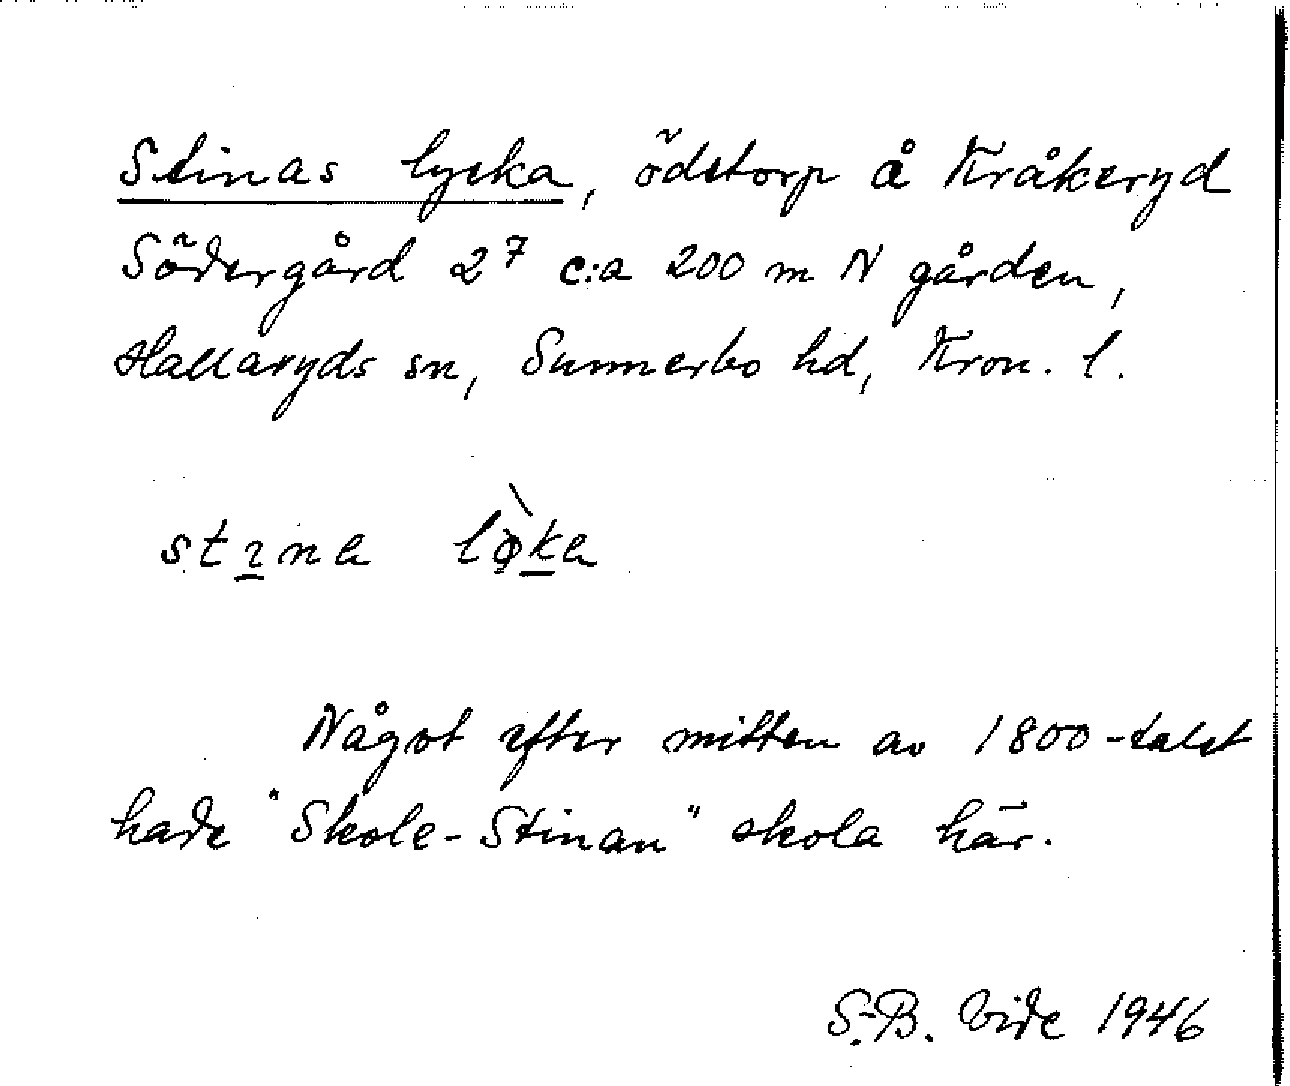 Stinas lycka, ödetorp å Kråkeryd
Södergård 2⁷ c:a 200 m N gården,
Hallaryds sn, Sunnerbo hd, Kron. l.
stına lø̀ka
Något efter mitten av 1800-talet
hade "Skole-Stinan" skola här.
S.-B. Vide 1946